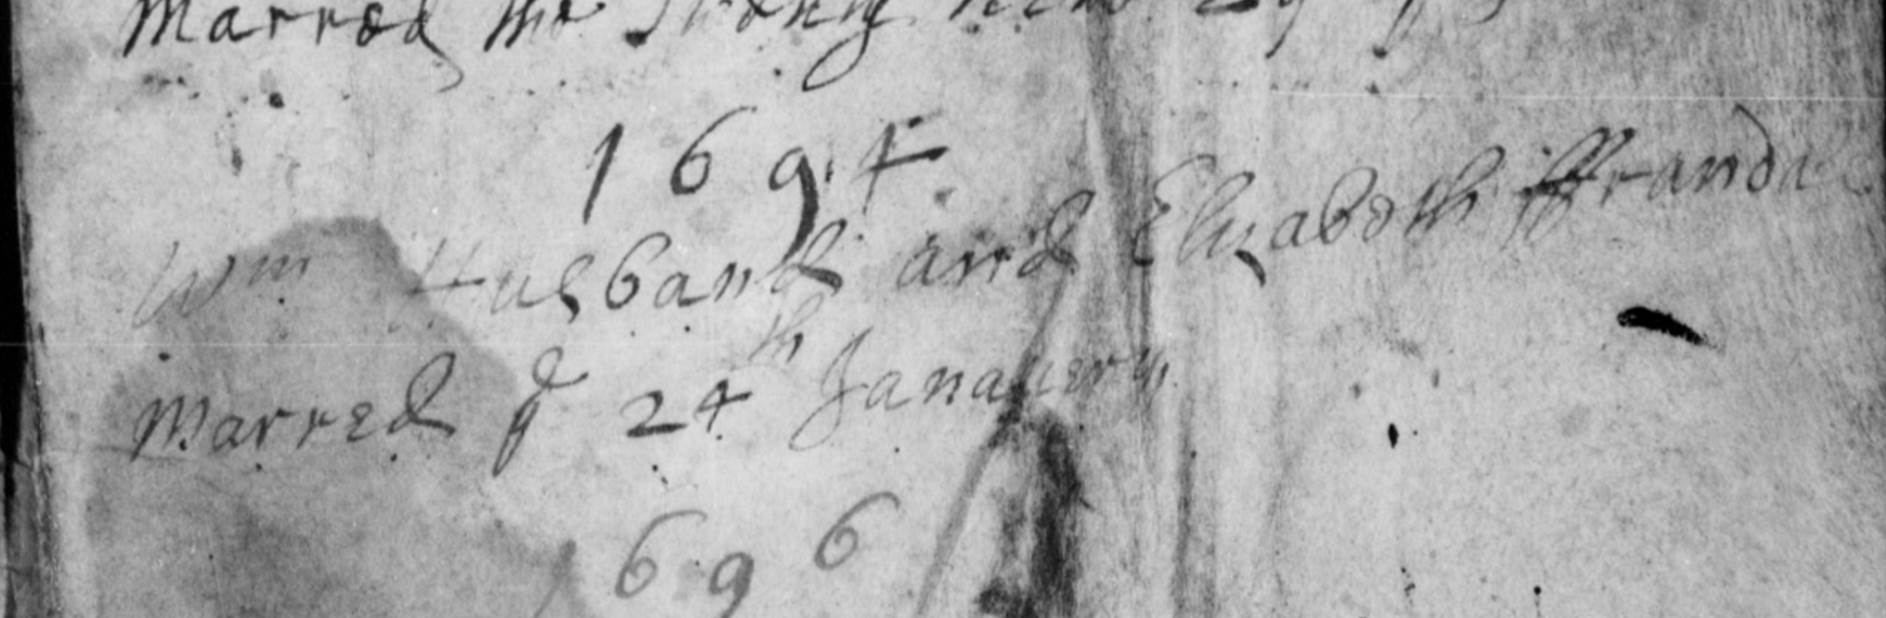 Marred the
1694
Wm Husband and Elizabeth
Marred ye 24th Janauery
1696